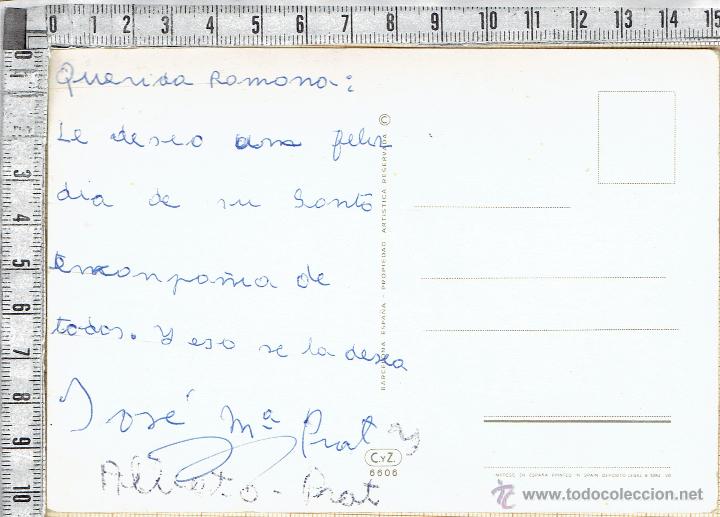 0 1 2 3 4 5 6 7 8 9 10 11 12 13 14 15
0 1 2 3 4 5 6 7 8 9 10
Querida Ramona:
Le deseo una feliz
dia de su Santo
en conpañia de
todos. Y eso se la desea
José Mª Prat y
Prat
BARCELONA ESPAÑA - PROPIEDAD ARTISTICA RESERVADA ©
C.yZ.
6606
www.todocoleccion.net